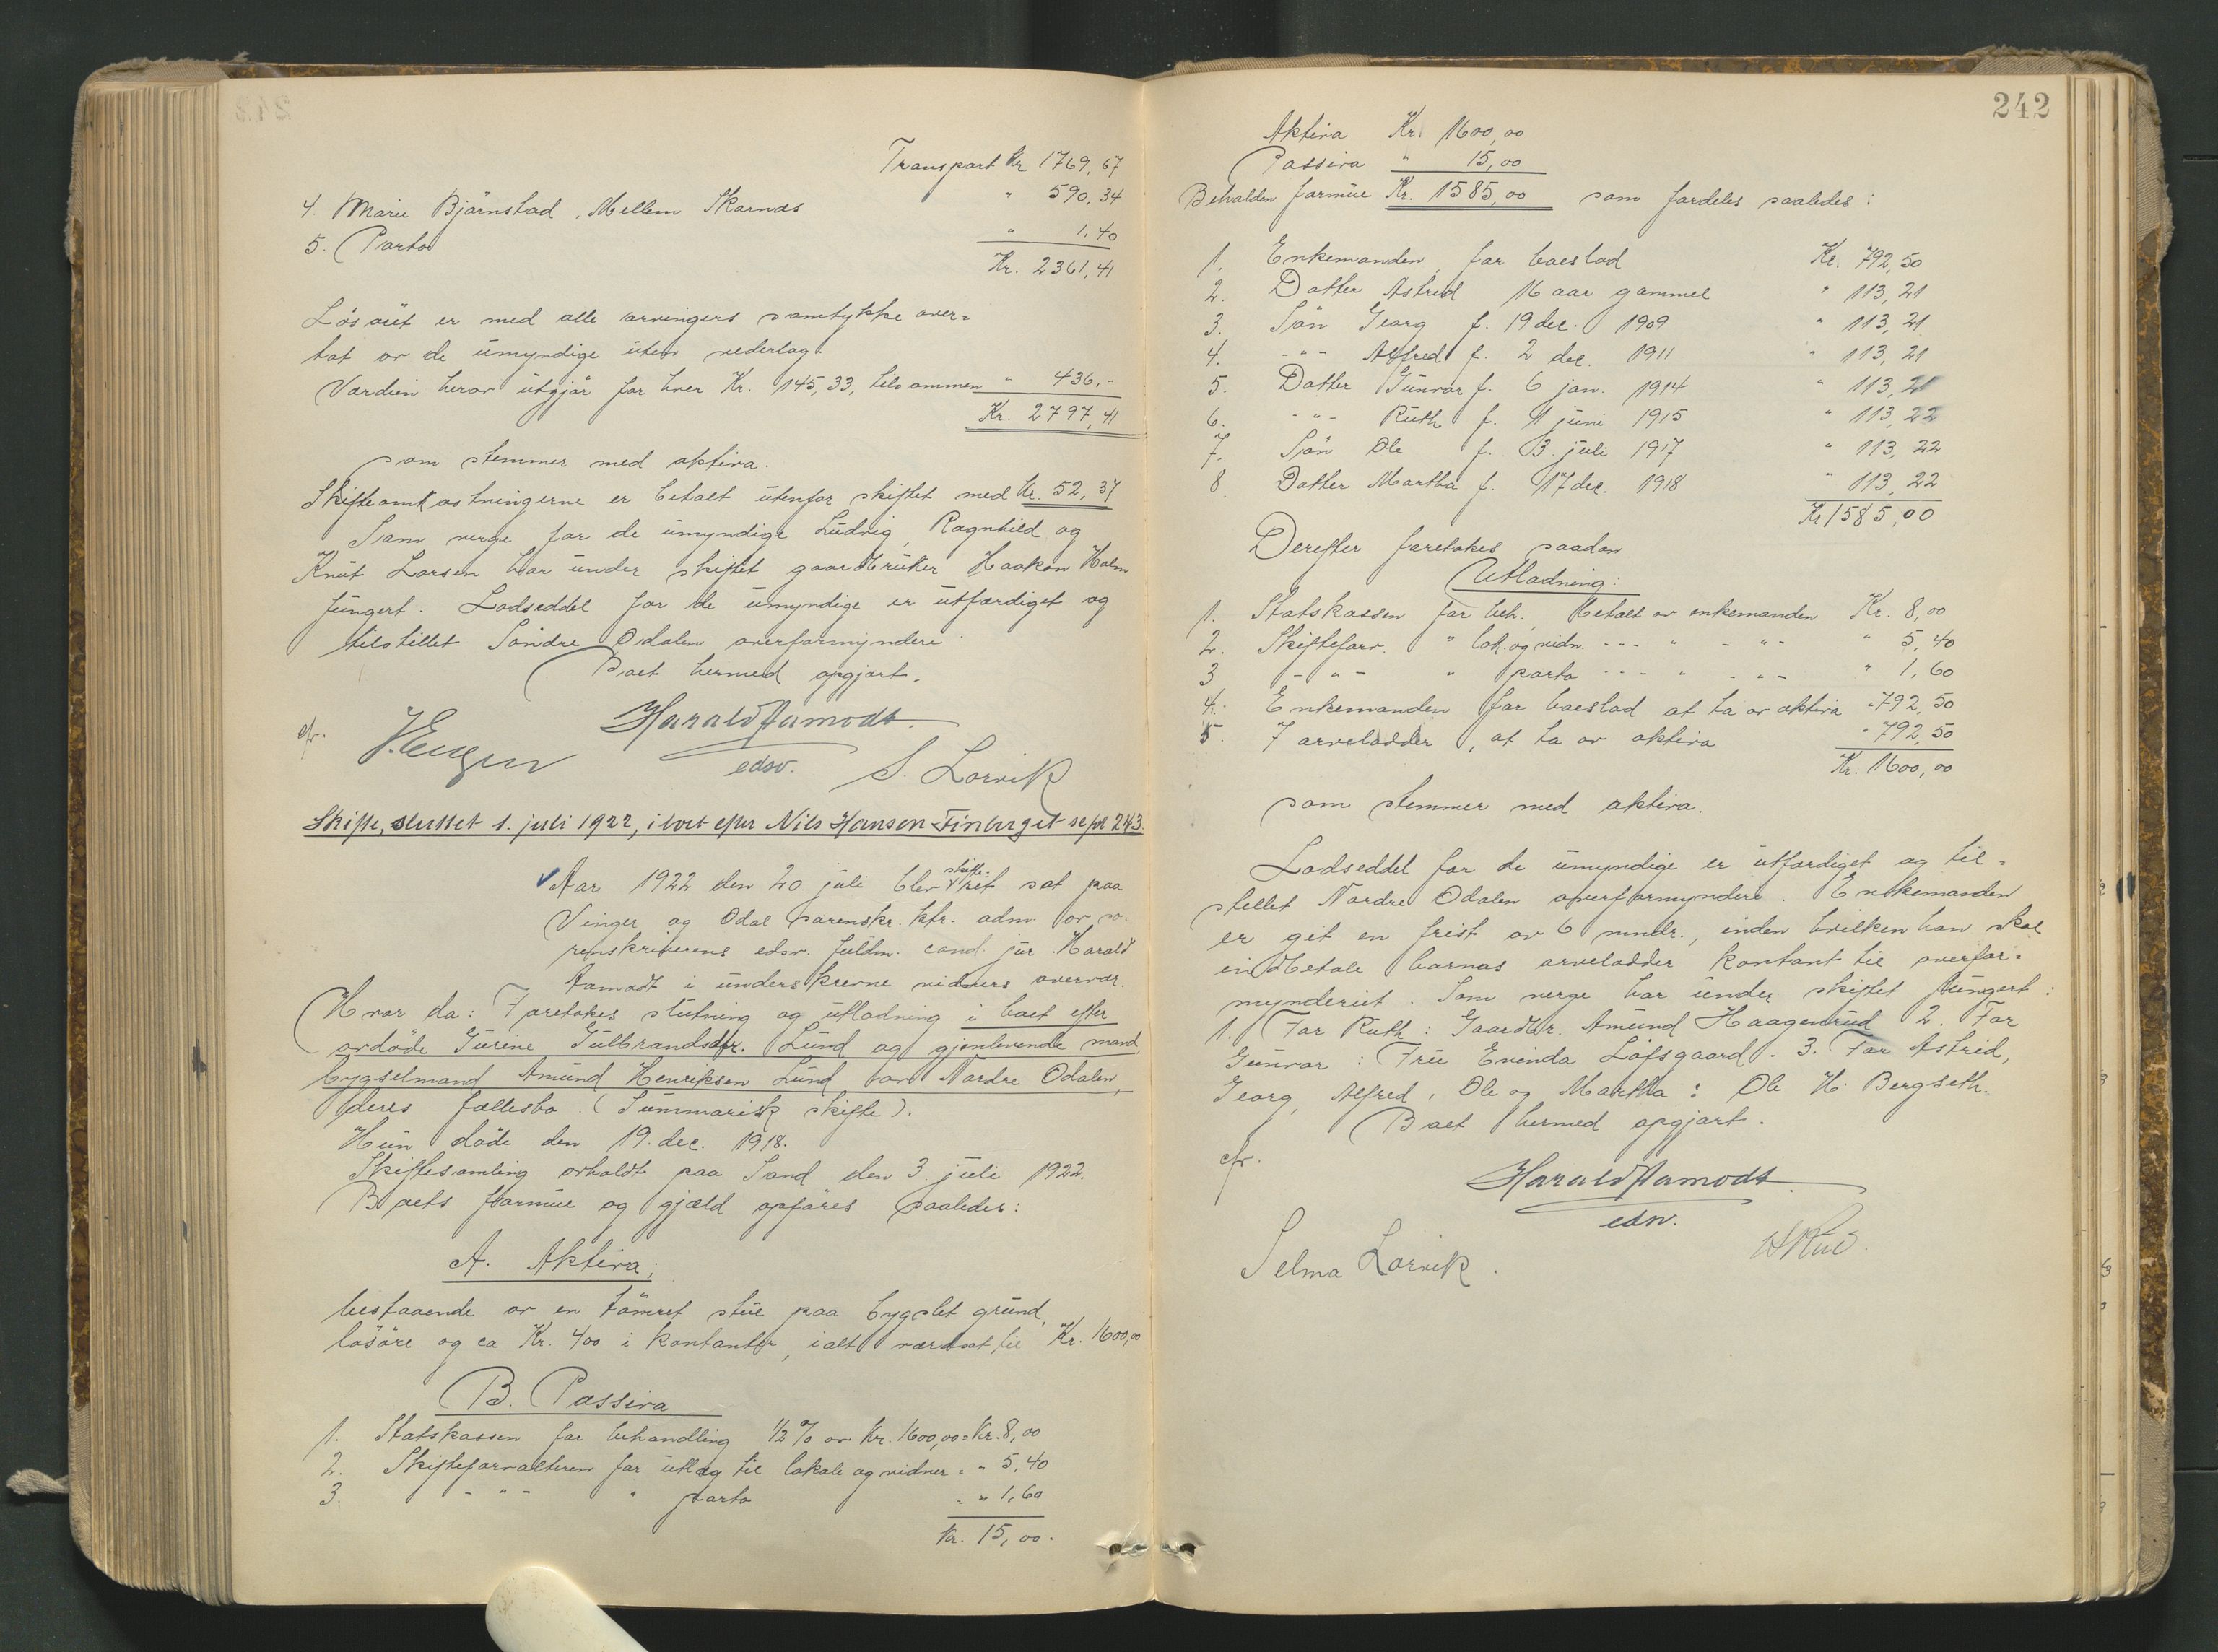 Transport Kr. 1769,67
4. Marie Bjørnstad, Mellem Skarnæs " 590,34
5. Porto " 1.40
Kr. 2361,41
Løsøiet er med alle arvingers samtykke over=
tat av de umyndige uten vederlag.
Værdien herav utgjør for hver Kr. 145,33, tilsammen " 436,-
Kr. 2797,41
som stemmer med aktiva.
Skifteomkostningerne er betalt utenfor skiftet med Kr. 52,37
Som verge for de umyndige Ludvig, Ragnhild og
Knut Larsen har under skiftet gaardbruker Haakon Holm
fungert. Lodseddel for de umyndige er utfærdiget og
tilstillet Søndre Odalen overformynderi.
Boet hermed opgjort.
cfr.
Harald Aamodt.
edsv.
S. Lorvik
Skifte, sluttet 1. juli 1922, i boet efter Nils Hansen Finberget se fol 243.
Aar 1922 den 20. juli blev skifte=ret sat paa
Vinger og Odal sorenskr. ktr. adm. av so-
renskriverens edsv. fuldm. cand. jur. Harald
Aamodt i underskrevne vidners overvær.
Hvor da: Foretokes slutning og utlodning i boet efter
avdøde Gurine Gulbrandsdtr. Lund og gjenlevende mand,
bygselmand Amund Henriksen Lund av Nordre Odalen,
deres fællesbo. (Summarisk skifte).
Hun døde den 19. dec. 1918.
Skiftesamling avholdt paa Sand den 3. juli 1922.
Boets formue og gjæld opføres saaledes:
A. Aktiva;
bestaaende av en tømret stue paa bygslet grund,
løsøre og ca Kr. 400 i kontanter, ialt værdsat til Kr. 1600,00
B. Passiva
1. Statskassen for behandling 1/2% av Kr. 1600,00 = Kr. 8,00
2. Skifteforvalteren for utlæg til lokale og vidner = " 5,40
3. - " - " porto = " 1,60
Kr. 15,00.
242
Aktiva Kr. 1600,00
Passiva " 15,00
Beholden formue Kr. 1585,00 som fordeles saaledes:
1. Enkemanden for boeslod Kr. 792,50
2. Datter Astrid 16 aar gammel " 113,21
3. Søn Georg f. 19 dec. 1909 " 113,21
4. - " - Alfred f. 2 dec. 1911 " 113,21
5. Datter Gunvor f. 6 jan. 1914 " 113,21
6. - " - Ruth f. 1 juni 1915 " 113,22
7. Søn Ole f. 3 juli 1917 " 113,22
8. Datter Martha f. 17 dec. 1918 " 113,22
Kr 1585,00
Derefter foretokes saadan
Utlodning:
1. Statskassen for beh., betalt av enkemanden Kr. 8,00
2. Skifteforv. " lok. og vidn. - " - " - " - " 5,40
3 - " - " porto - " - " - " - " 1,60
4. Enkemanden for boeslod at ta av aktiva " 792,50
5. 7 arvelodder, at ta av aktiva " 792,50
Kr. 1600,00
som stemmer med aktiva.
Lodseddel for de umyndige er utfærdiget og til=
stillet Nordre Odalen overformynderi. Enkemanden
er git en frist av 6 mndr., inden hvilken han skal
indbetale barnas arvelodder kontant til overfor=
mynderiet. Som verge har under skiftet fungert:
1. For Ruth: Gaardbr. Amund Haagenrud 2. For
Gunvor: Fru Eveinda Løfsgaard. 3. For Astrid,
Georg, Alfred, Ole og Martha: Ole H. Bergseth.
Boet hermed opgjort.
cfr.
Harald Aamodt.
edsv.
Selma Lorvik.